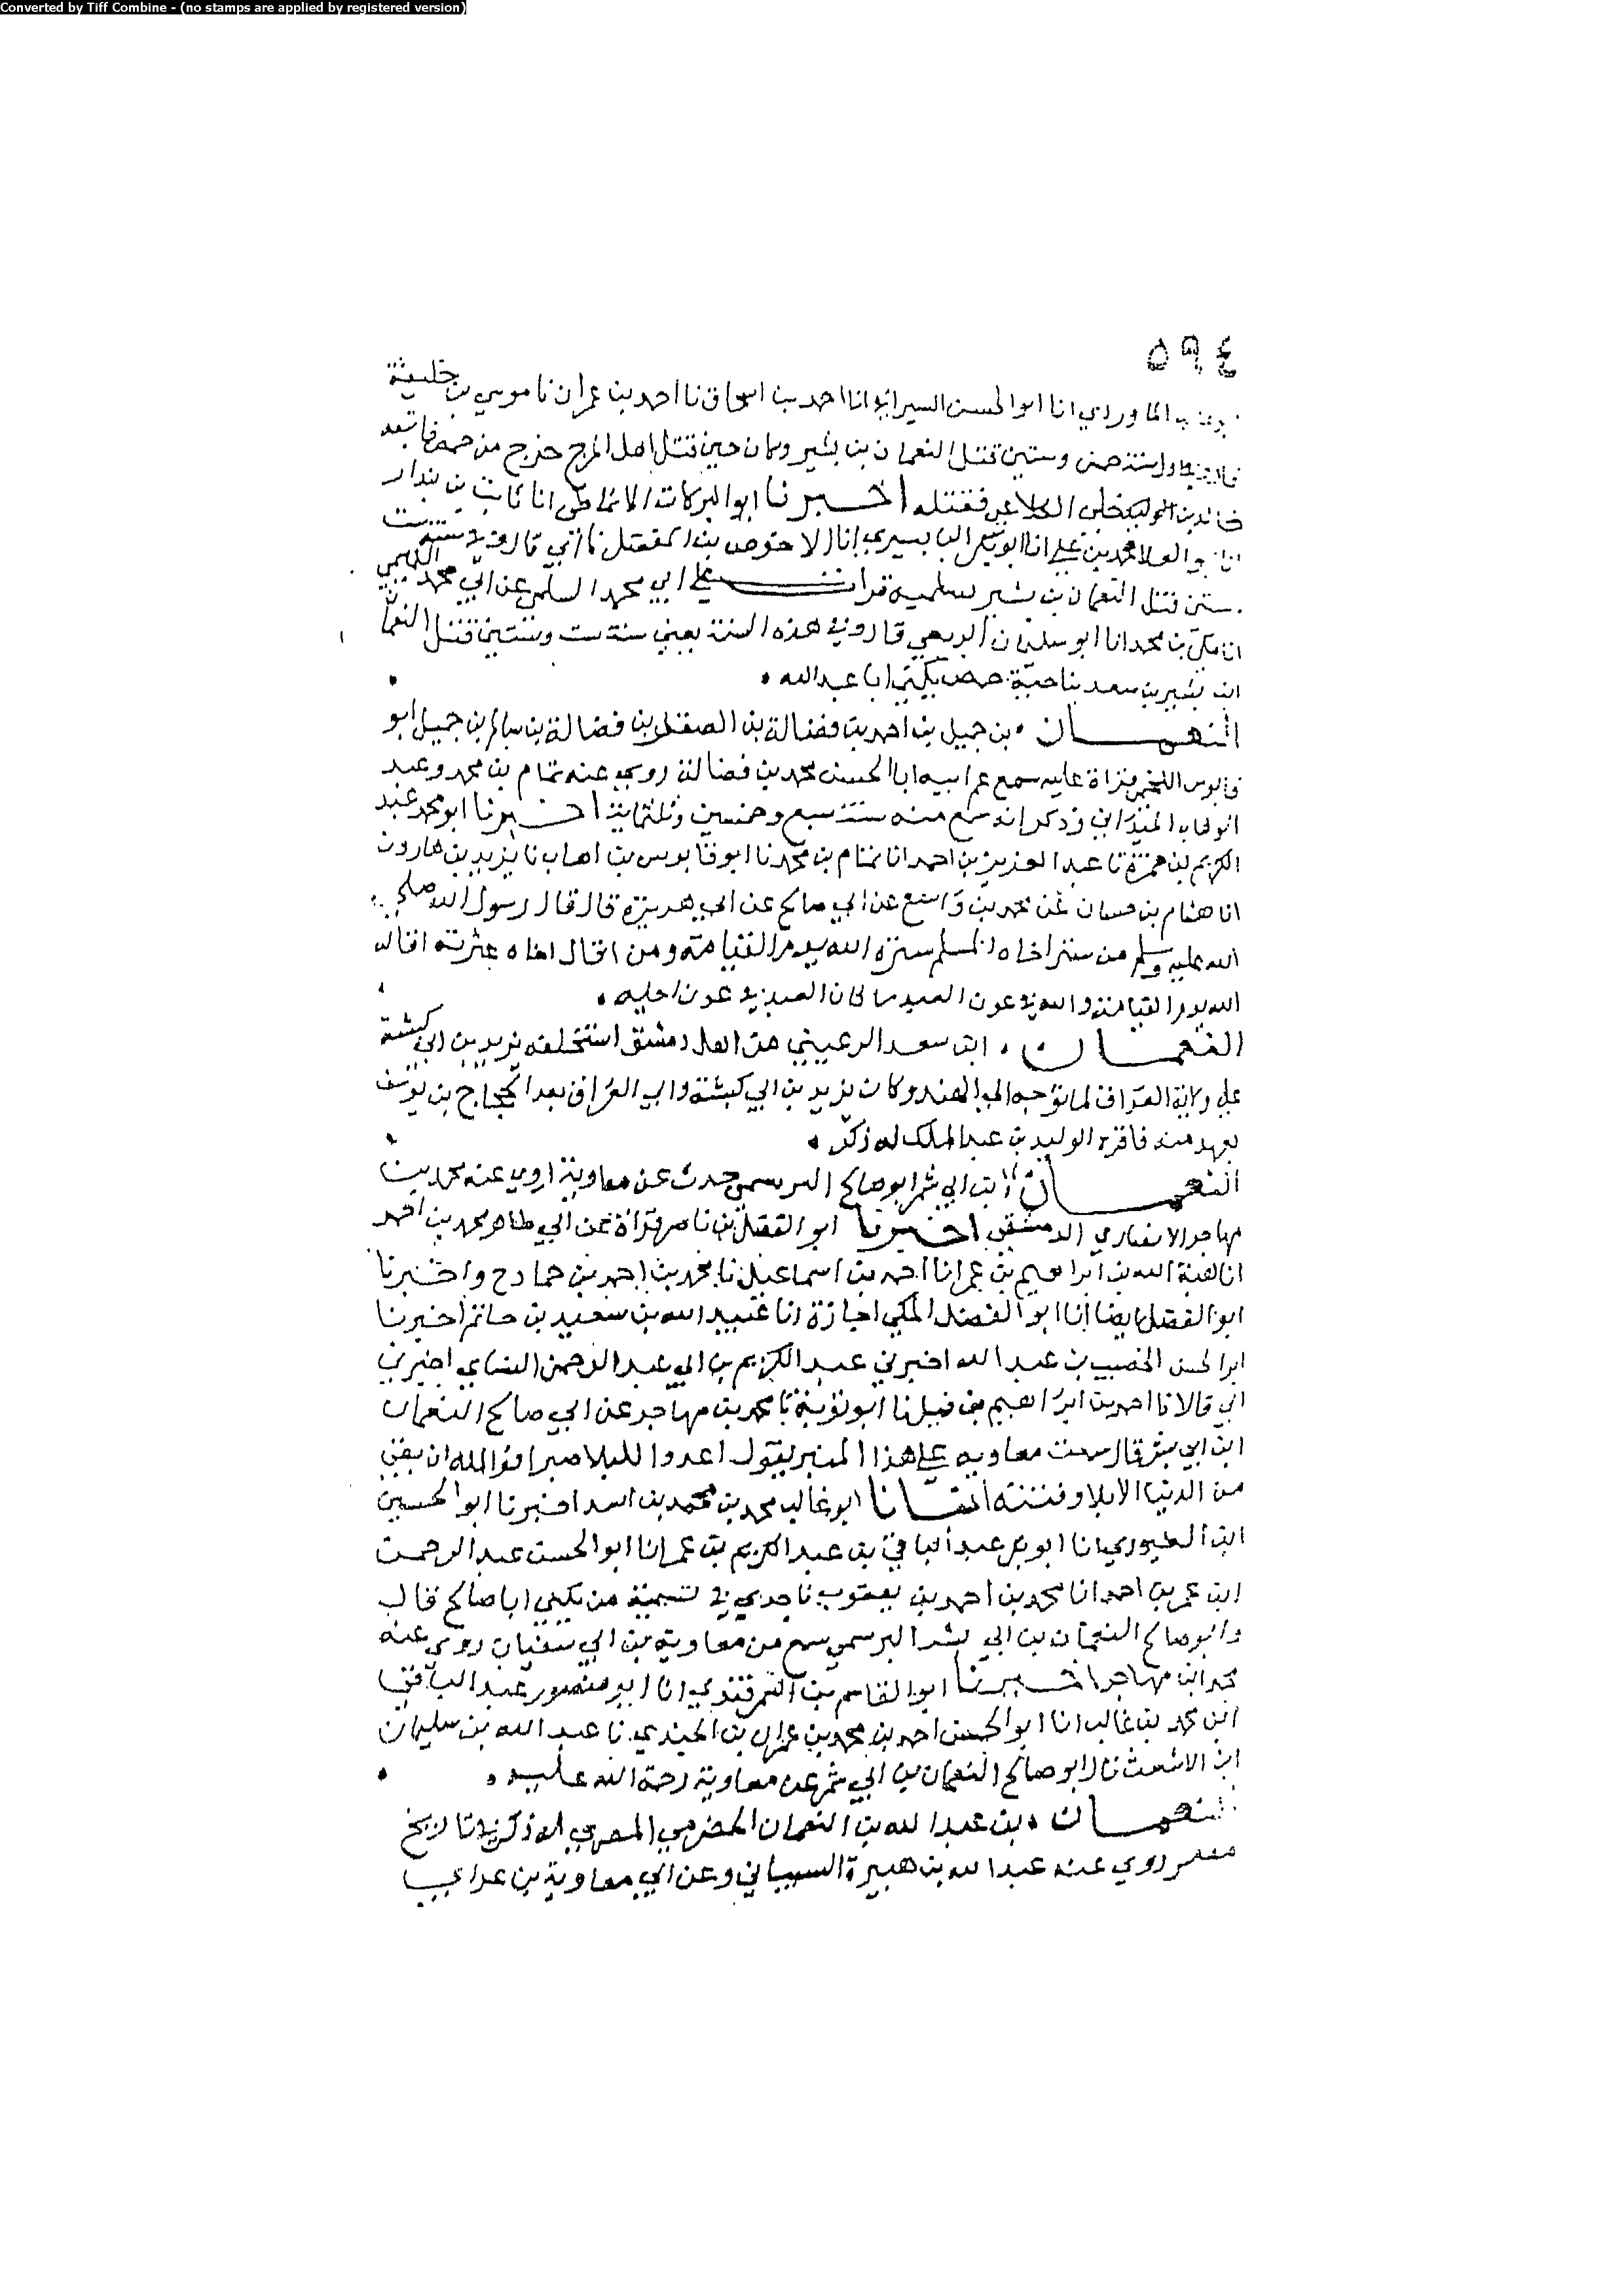 Converted by Tiff Combine - (no stamps are applied by registered version)
٥٩٤
الماوردي انا ابو الحسن السيرافي انا احمد بن اسحاق نا احمد بن عمران نا موسي بن خليفة
وستين قتل النعمان بن بشير وكان حين قتل اهل المرج خرج من حمص فاتبعه
خالد بن الكلاعي فقتله اخبرنا ابو البركات الانماطي انا ثابت بن بندار
انا ابو العلا محمد بن علي انا ابو بكر البابسيري انا الاحوص بن المفضل نا ابي قال وفي سنة ست
وستين قتل النعمان بن بشير بسلمية قرات علي ابي محمد السلمي عن ابي محمد التميمي
انا مكي بن محمد انا ابو سليمان الربعي قال وفي هذه السنة يعني سنة ست وستين قتل النعمان
ابن بشير بن سعد بناحية حمص يكني ابا عبد الله
النعمان بن جميل بن احمد بن فضالة بن الصقر بن فضالة بن سالم بن جميل ابو
قابوس اللخمي قراة عليه سمع عم ابيه ابا الحسن محمد بن فضالة روي عنه تمام بن محمد وعبد
الوهاب الميداني وذكر انه سمع منه سنة سبع وخمسين وثلثماية اخبرنا ابو محمد عبد
الكريم بن حمزة نا عبد العزيز بن احمد انا تمام بن محمد نا ابو قابوس بن اهاب نا يزيد بن هارون
انا هشام بن حسان عن محمد بن واسع عن ابي صالح عن ابي هريرة قال قال رسول الله صلي
الله عليه وسلم من ستر اخاه المسلم ستره الله يوم القيامة ومن اقال اخاه عثرته اقاله
الله يوم القيامة والله في عون العبد ما كان العبد في عون اخيه
النعمان ابن سعد الرعيني من اهل دمشق استخلفه يزيد بن ابي كبشة
علي ولاية العراق لما توجه الي الهند وكان يزيد بن ابي كبشة والي العراق بعد الحجاج بن يوسف
بعهد منه فاقره الوليد بن عبد الملك له ذكر
النعمان بن ابي شمر ابو صالح البرسمي حدث عن معاوية روي عنه محمد بن
مهاجر الانصاري الدمشقي اخبرنا ابو الفضل بن ناصر قراة عن ابي طاهر محمد بن احمد
انا هبة الله بن ابراهيم بن عمر انا احمد بن اسماعيل نا محمد بن احمد بن حماد ح واخبرنا
ابو الفضل ايضا انا ابو الفضل المكي اجازة انا عبيد الله بن سعيد بن حاتم اخبرنا
ابو الحسن الخصيب بن عبد الله اخبرني عبد الكريم بن ابي عبد الرحمن النساي اخبرني
ابي قالا نا احمد بن ابراهيم بن فيل نا ابو توبة نا محمد بن مهاجر عن ابي صالح النعمان
ابن ابي بشر قال سمعت معاويه علي هذا المنبر يقول اعدوا للبلا صبرا فوالله ان بقي
من الدنيا الا بلا وفتنة انبانا ابو غالب محمد بن محمد بن اسد اخبرنا ابو الحسين
ابن الطيوري انا ابو بكر عبد الباقي بن عبد الكريم بن عمر انا ابو الحسن عبد الرحمن
ابن عمر بن احمد انا محمد بن احمد بن يعقوب نا جدي في تسمية من يكني ابا صالح قال
وابو صالح النعمان بن ابي بشر البرسمي سمع من معاوية بن ابي سفيان روي عنه
محمد ابن مهاجر اخبرنا ابو القاسم بن السمرقندي انا ابو منصور عبد الباقي
ابن محمد بن غالب انا ابو الحسن احمد بن محمد بن عمران بن الجندي نا عبد الله بن سليمان
ابن الاشعث نا ابو صالح النعمان بن ابي شمر عن معاوية رحمة الله عليه
النعمان بن عبد الله بن النعمان الحضرمي المصري له ذكر في تاريخ
مصر روي عنه عبد الله بن هبيرة السبياني وعن ابي معاوية بن